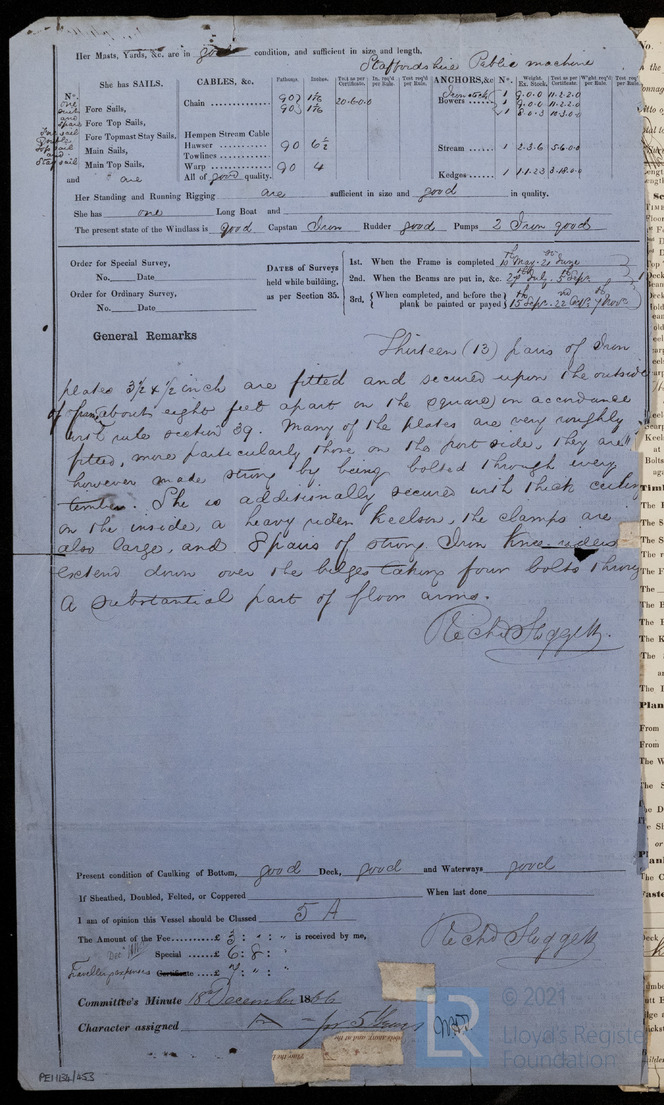 Her Masts, Yards, &c. are in good condition, and sufficient in size and length.
Staffordshire Public machine
She has SAILS.
CABLES, &c.
Fathoms.
Inches.
Test as per Certificate.
In. req'd per Rule.
Test req'd per Rule.
ANCHORS, &c
Nº.
Weight. Ex. Stock.
Test as per Certificate.
W'ght req'd per Rule.
Test req'd per Rule.
Nº.
one suit and
Fore Sails,
Fore Top Sails,
Fore Topmast Stay Sails,
Main Sails,
Main Top Sails,
and are
Fore sail
top sail
and
Stay sail
Chain 90 90 20.6.0.0
Hempen Stream Cable
Hawser 90 6½
Towlines
Warp 90 4
All of good quality.
Iron stock 1 9.0.0 11.2.2.0
Bowers 1 9.0.0 11.2.2.0
1 8.0.3 10.3.0.0
Stream 1 2.3.6 5.6.0.0
Kedges 1 1.1.23 3.18.0.0
Her Standing and Running Rigging are sufficient in size and good in quality.
She has one Long Boat and
The present state of the Windlass is good Capstan Iron Rudder good Pumps 2 Iron good
Order for Special Survey,
No. Date
Order for Ordinary Survey,
No. Date
DATES of Surveys
held while building,
as per Section 35.
1st. When the Frame is completed 10th May. 21st June
2nd. When the Beams are put in, &c. 27th July. 5th Sept.
3rd. { When completed, and before the plank be painted or payed } 15th Sept. 22nd Oct. 7th Nov.
General Remarks
Thirteen (13) pairs of Iron
plates 3½ x ½ inch are fitted and secured upon the outside
of frame, about eight feet apart on the square) in accordance
with rule section 39. Many of the plates are very roughly
fitted, more particularly those on the port side, they are
however made strong by being bolted through every
timber. She is additionally secured with thick ceiling
on the inside, a heavy rider Keelson, the clamps are
also large, and 8 pairs of strong Iron Knee riders
extend down over the bilges taking four bolts through
a substantial part of floor arms.
Richd Sloggett.
Present condition of Caulking of Bottom, good Deck, good and Waterways good
If Sheathed, Doubled, Felted, or Coppered When last done
I am of opinion this Vessel should be Classed 5 A
The Amount of the Fee..........£ 3 : " : " is received by me,
Special ..... £ 6 : 8 : "
Travelling expenses Certificate .... £ 7 : " : "
Richd Sloggett
Committee's Minute 18 December 1866
Character assigned A for 5 Years
PE1134/453
LR
© 2021
Lloyd's Registe
Foundation